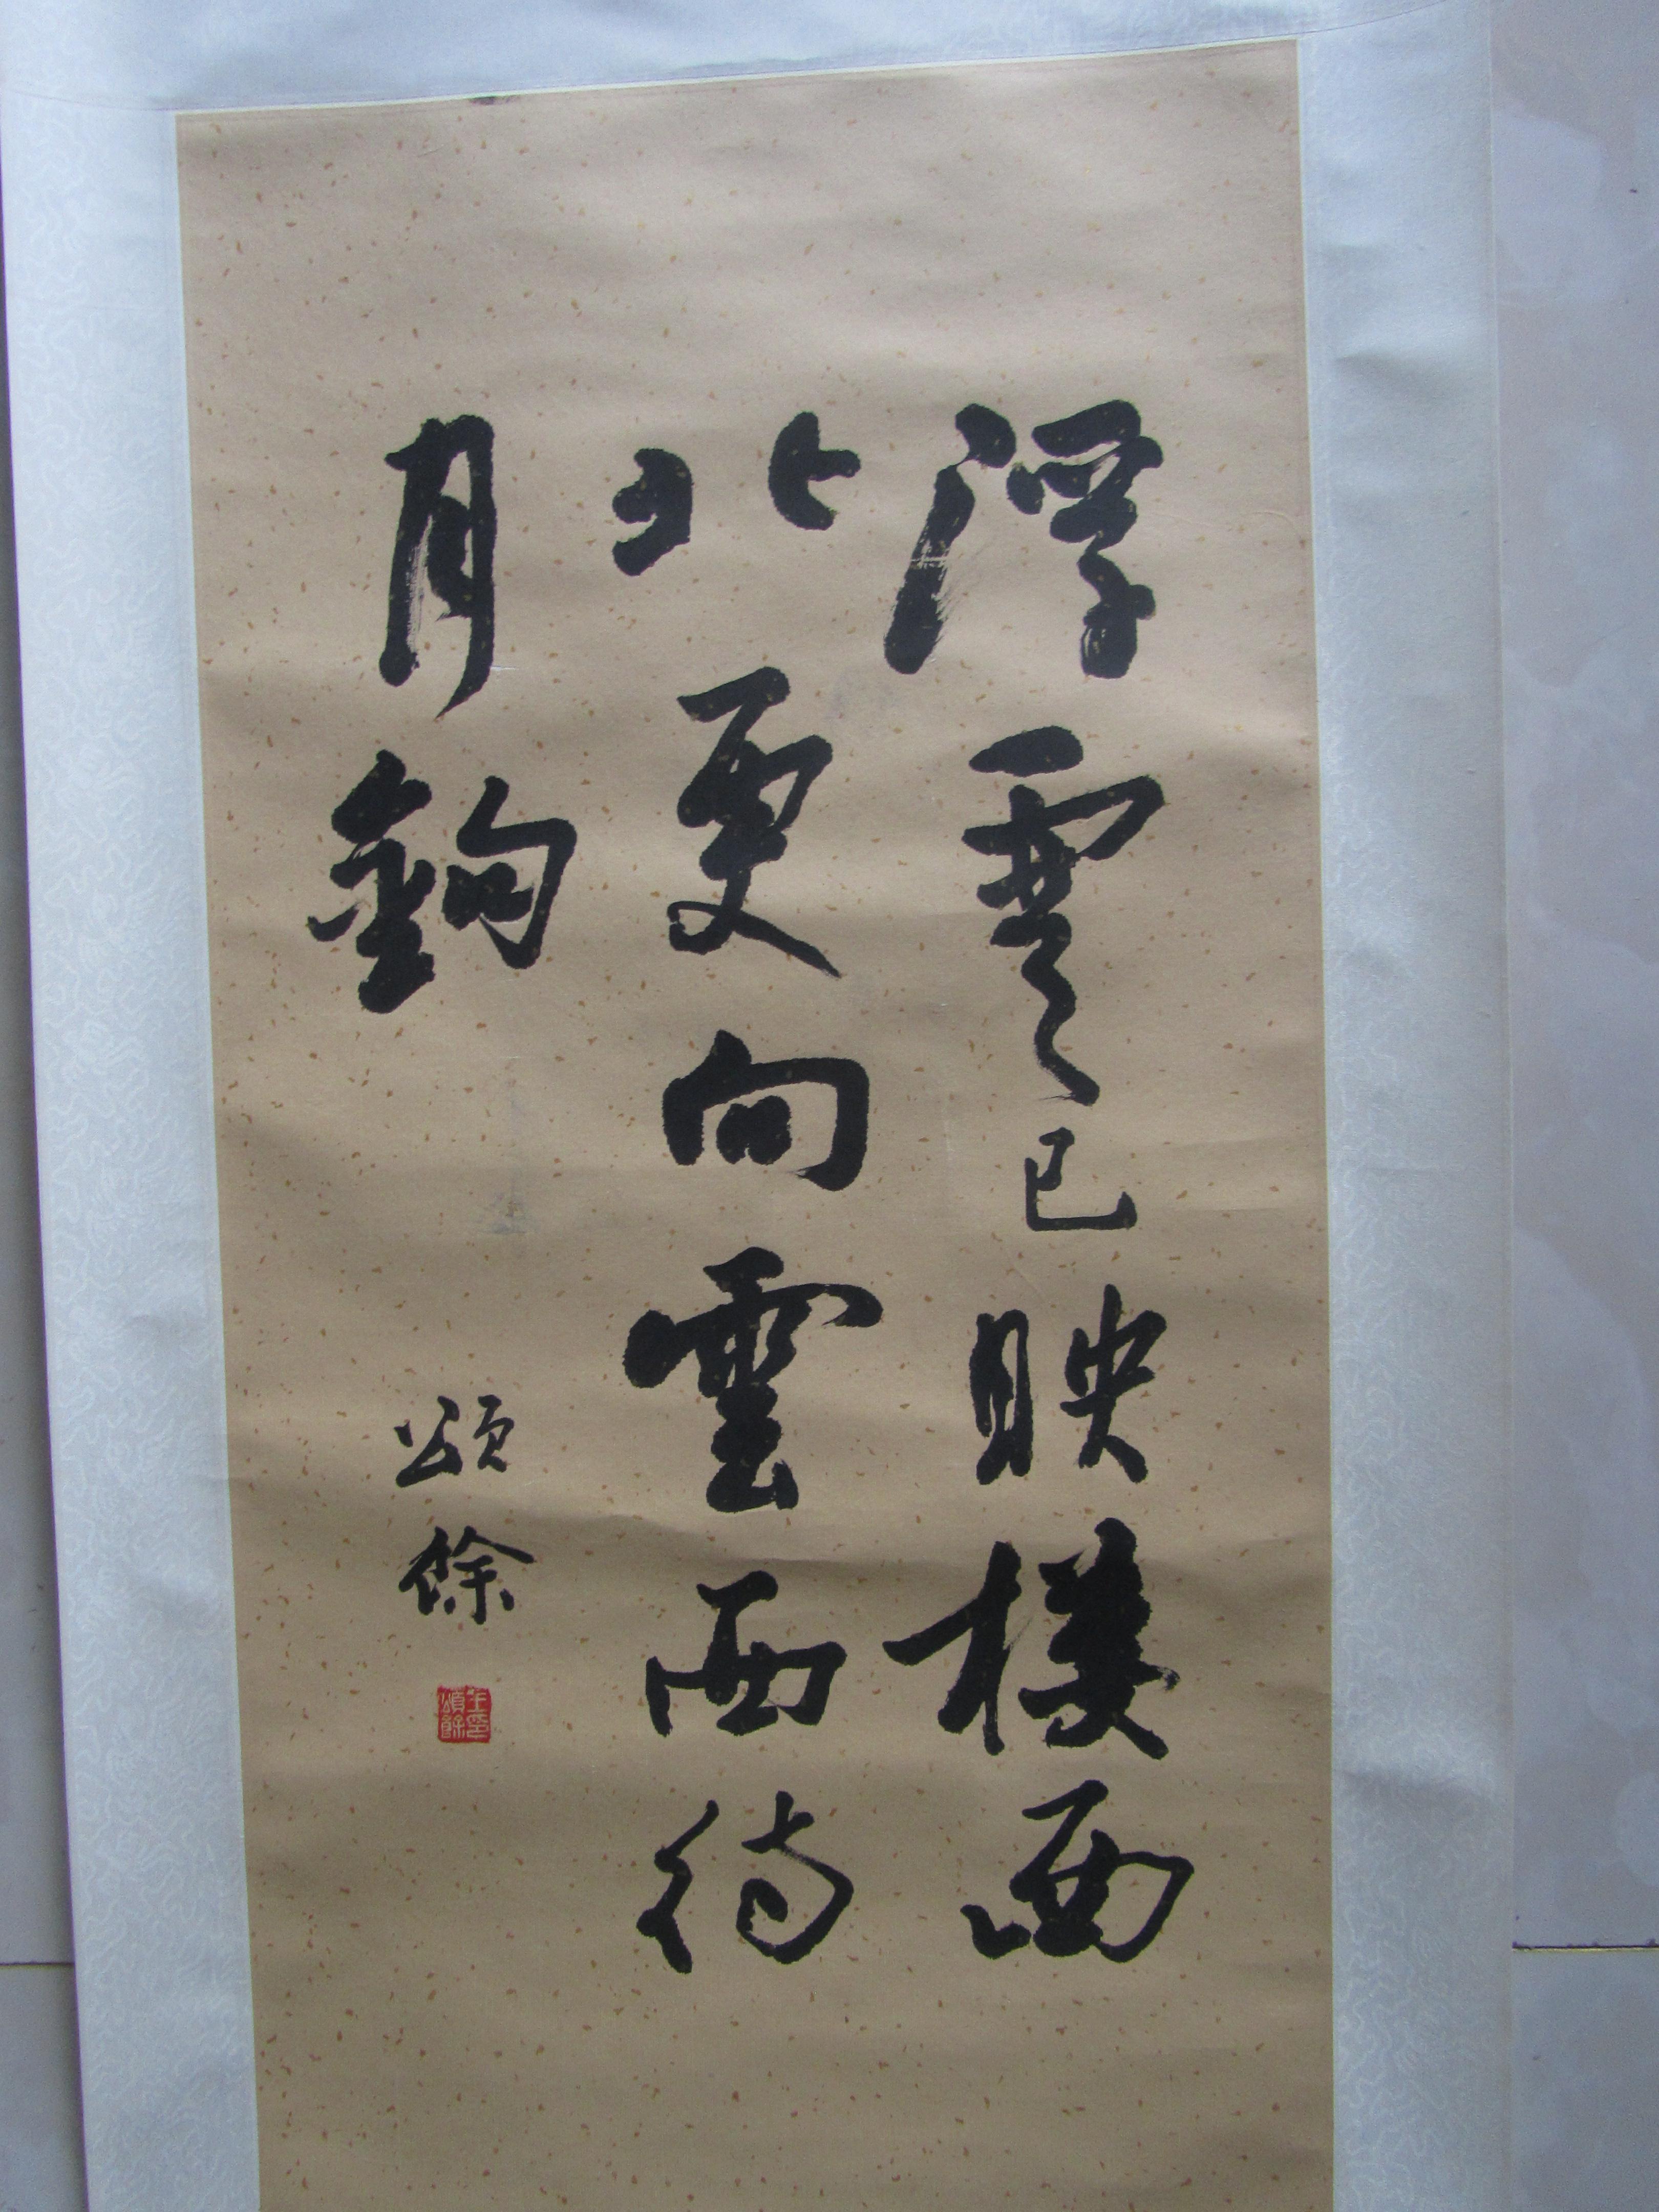 浮雲已映樓西
北更向雲西待
月鈎
頌餘
王印
頌餘